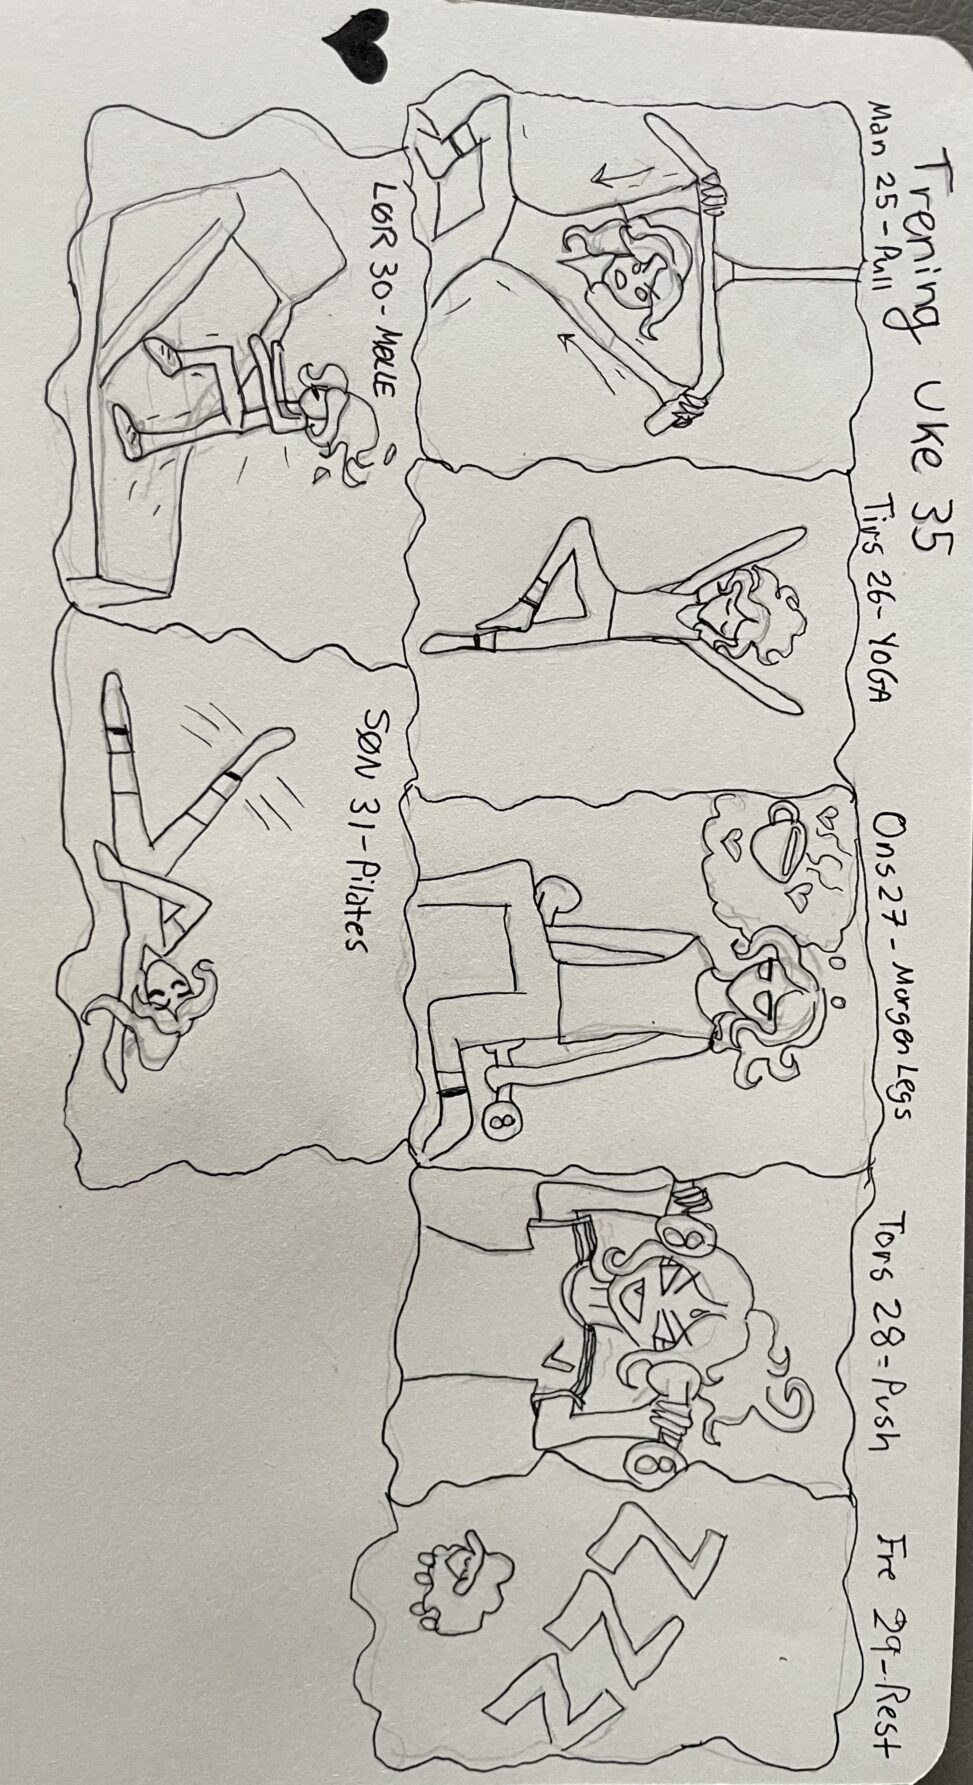 Trening Uke 35
Man 25-Pull
Tirs 26-YOGA
Ons 27-Morgen Legs
Tors 28-Push
Fre 29-Rest
8
8
8
ZZZ
LØR 30-MØLLE
SØN 31-Pilates